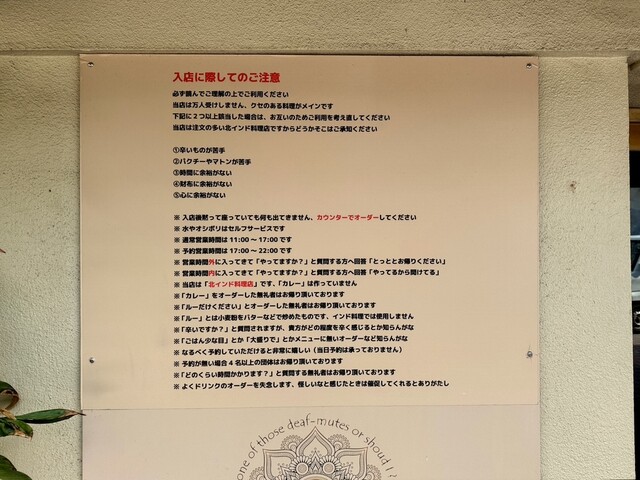 入店に際してのご注意
必ず読んでご理解の上でご利用ください
当店は万人受けしません、クセのある料理がメインです
下記に２つ以上該当した場合は、お互いのためご利用を考え直してください
当店は注文の多い北インド料理店ですからどうかそこはご承知ください
①辛いものが苦手
②パクチーやマトンが苦手
③時間に余裕がない
④財布に余裕がない
⑤心に余裕がない
※ 入店後黙って座っていても何も出てきません、カウンターでオーダーしてください
※ 水やオシボリはセルフサービスです
※ 通常営業時間は 11:00 ～ 17:00 です
※ 予約営業時間は 17:00 ～ 22:00 です
※ 営業時間外に入ってきて「やってますか？」と質問する方へ回答「とっととお帰りください」
※ 営業時間内に入ってきて「やってますか？」と質問する方へ回答「やってるから開けてる」
※ 当店は「北インド料理店」です、「カレー」は作っていません
※「カレー」をオーダーした無礼者はお帰り頂いております
※「ルーだけください」とオーダーした無礼者はお帰り頂いております
※「ルー」とは小麦粉をバターなどで炒めたものです、インド料理では使用しません
※「辛いですか？」と質問されますが、貴方がどの程度を辛く感じるとか知らんがな
※「ごはん少な目」とか「大盛りで」とかメニューに無いオーダーなど知らんがな
※ なるべく予約していただけると非常に嬉しい（当日予約は承っておりません）
※ 予約が無い場合４名以上の団体はお帰り頂いております
※「どのくらい時間かかります？」と質問する無礼者はお帰り頂いております
※ よくドリンクのオーダーを失念します、怪しいなと感じたときは催促してくれるとありがたし
one of those deaf-mutes or shoud I